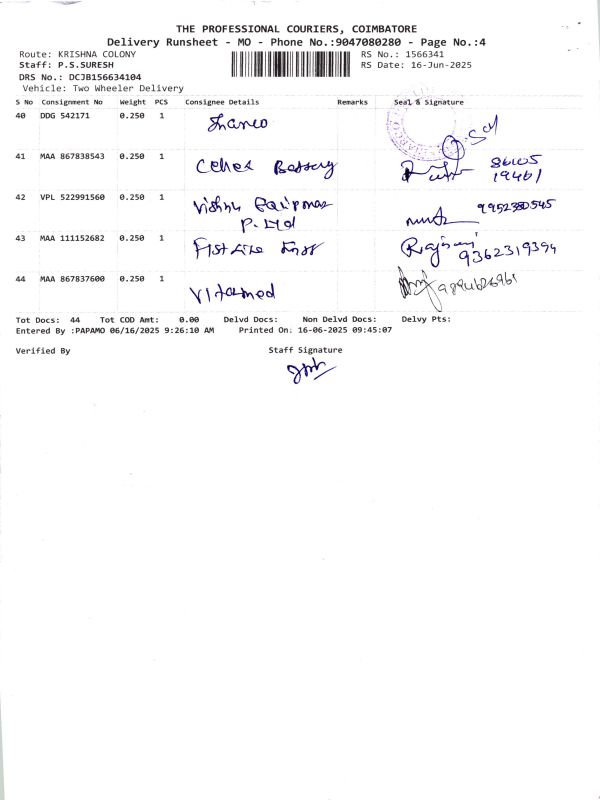 THE PROFESSIONAL COURIERS, COIMBATORE
Delivery Runsheet - MO - Phone No.:9047080280 - Page No.:4
Route: KRISHNA COLONY RS No.: 1566341
Staff: P.S.SURESH RS Date: 16-Jun-2025
DRS No.: DCJB156634104
Vehicle: Two Wheeler Delivery
S No Consignment No Weight PCS Consignee Details Remarks Seal & Signature
40 DDG 542171 0.250 1
41 MAA 867838543 0.250 1 86105
19461
42 VPL 522991560 0.250 1 Vishnu
P. Ltd 9952380545
43 MAA 111152682 0.250 1 9362319394
44 MAA 867837600 0.250 1 Vitamed 9894626961
Tot Docs: 44 Tot COD Amt: 0.00 Delvd Docs: Non Delvd Docs: Delvy Pts:
Entered By :PAPAMO 06/16/2025 9:26:10 AM Printed On: 16-06-2025 09:45:07
Verified By Staff Signature